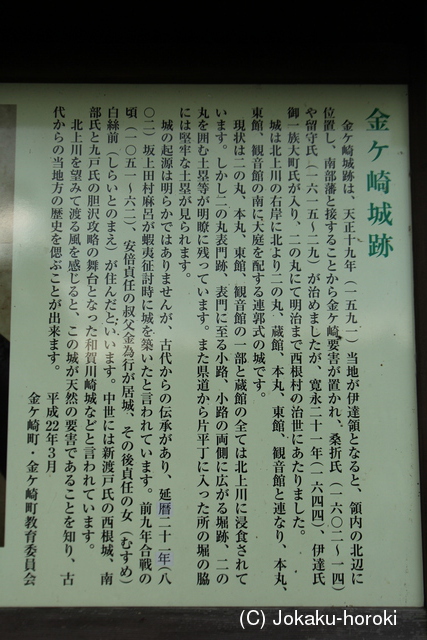 金ケ崎城跡
金ケ崎城跡は、天正十九年(一五九一)当地が伊達領となると、領内の北辺に
位置し、南部藩と接することから金ケ崎要害が置かれ、桑折氏(一六〇二～一四)
や留守氏(一六一五～二九)が治めましたが、寛永二十一年(一六四四)、伊達氏
御一族大町氏が入り、二の丸にて明治まで西根村の治世にあたりました。
城は北上川の右岸に北より二の丸、蔵館、本丸、東館、観音館と連なり、本丸、
東館、観音館の南に大庭を配する連郭式の城です。
現状は二の丸、本丸、東館、観音館の一部と蔵館の全ては北上川に浸食されて
います。しかし二の丸表門跡、表門に至る小路、小路の両側に広がる堀跡、二の
丸を囲む土塁等が明瞭に残っています。また県道から片平丁に入った所の堀の脇
には堅牢な土塁が見られます。
城の起源は明らかではありませんが、古代からの伝承があり、延暦二十一年(八
〇二)坂上田村麻呂が蝦夷征討時に城を築いたと言われています。前九年合戦の
頃(一〇五一～六二)、安倍貞任の叔父金為行が居城、その後貞任の女(むすめ)
白絲前(しらいとのまえ)が住んだといいます。中世には新渡戸氏の西根城、南
部氏と九戸氏の胆沢攻略の舞台となった和賀川崎城などと言われています。
北上川を望みて渡る風を感じると、この城が天然の要害であることを知り、古
代からの当地方の歴史を偲ぶことが出来ます。
平成22年3月
金ケ崎町・金ケ崎町教育委員会
(C) Jokaku-horoki